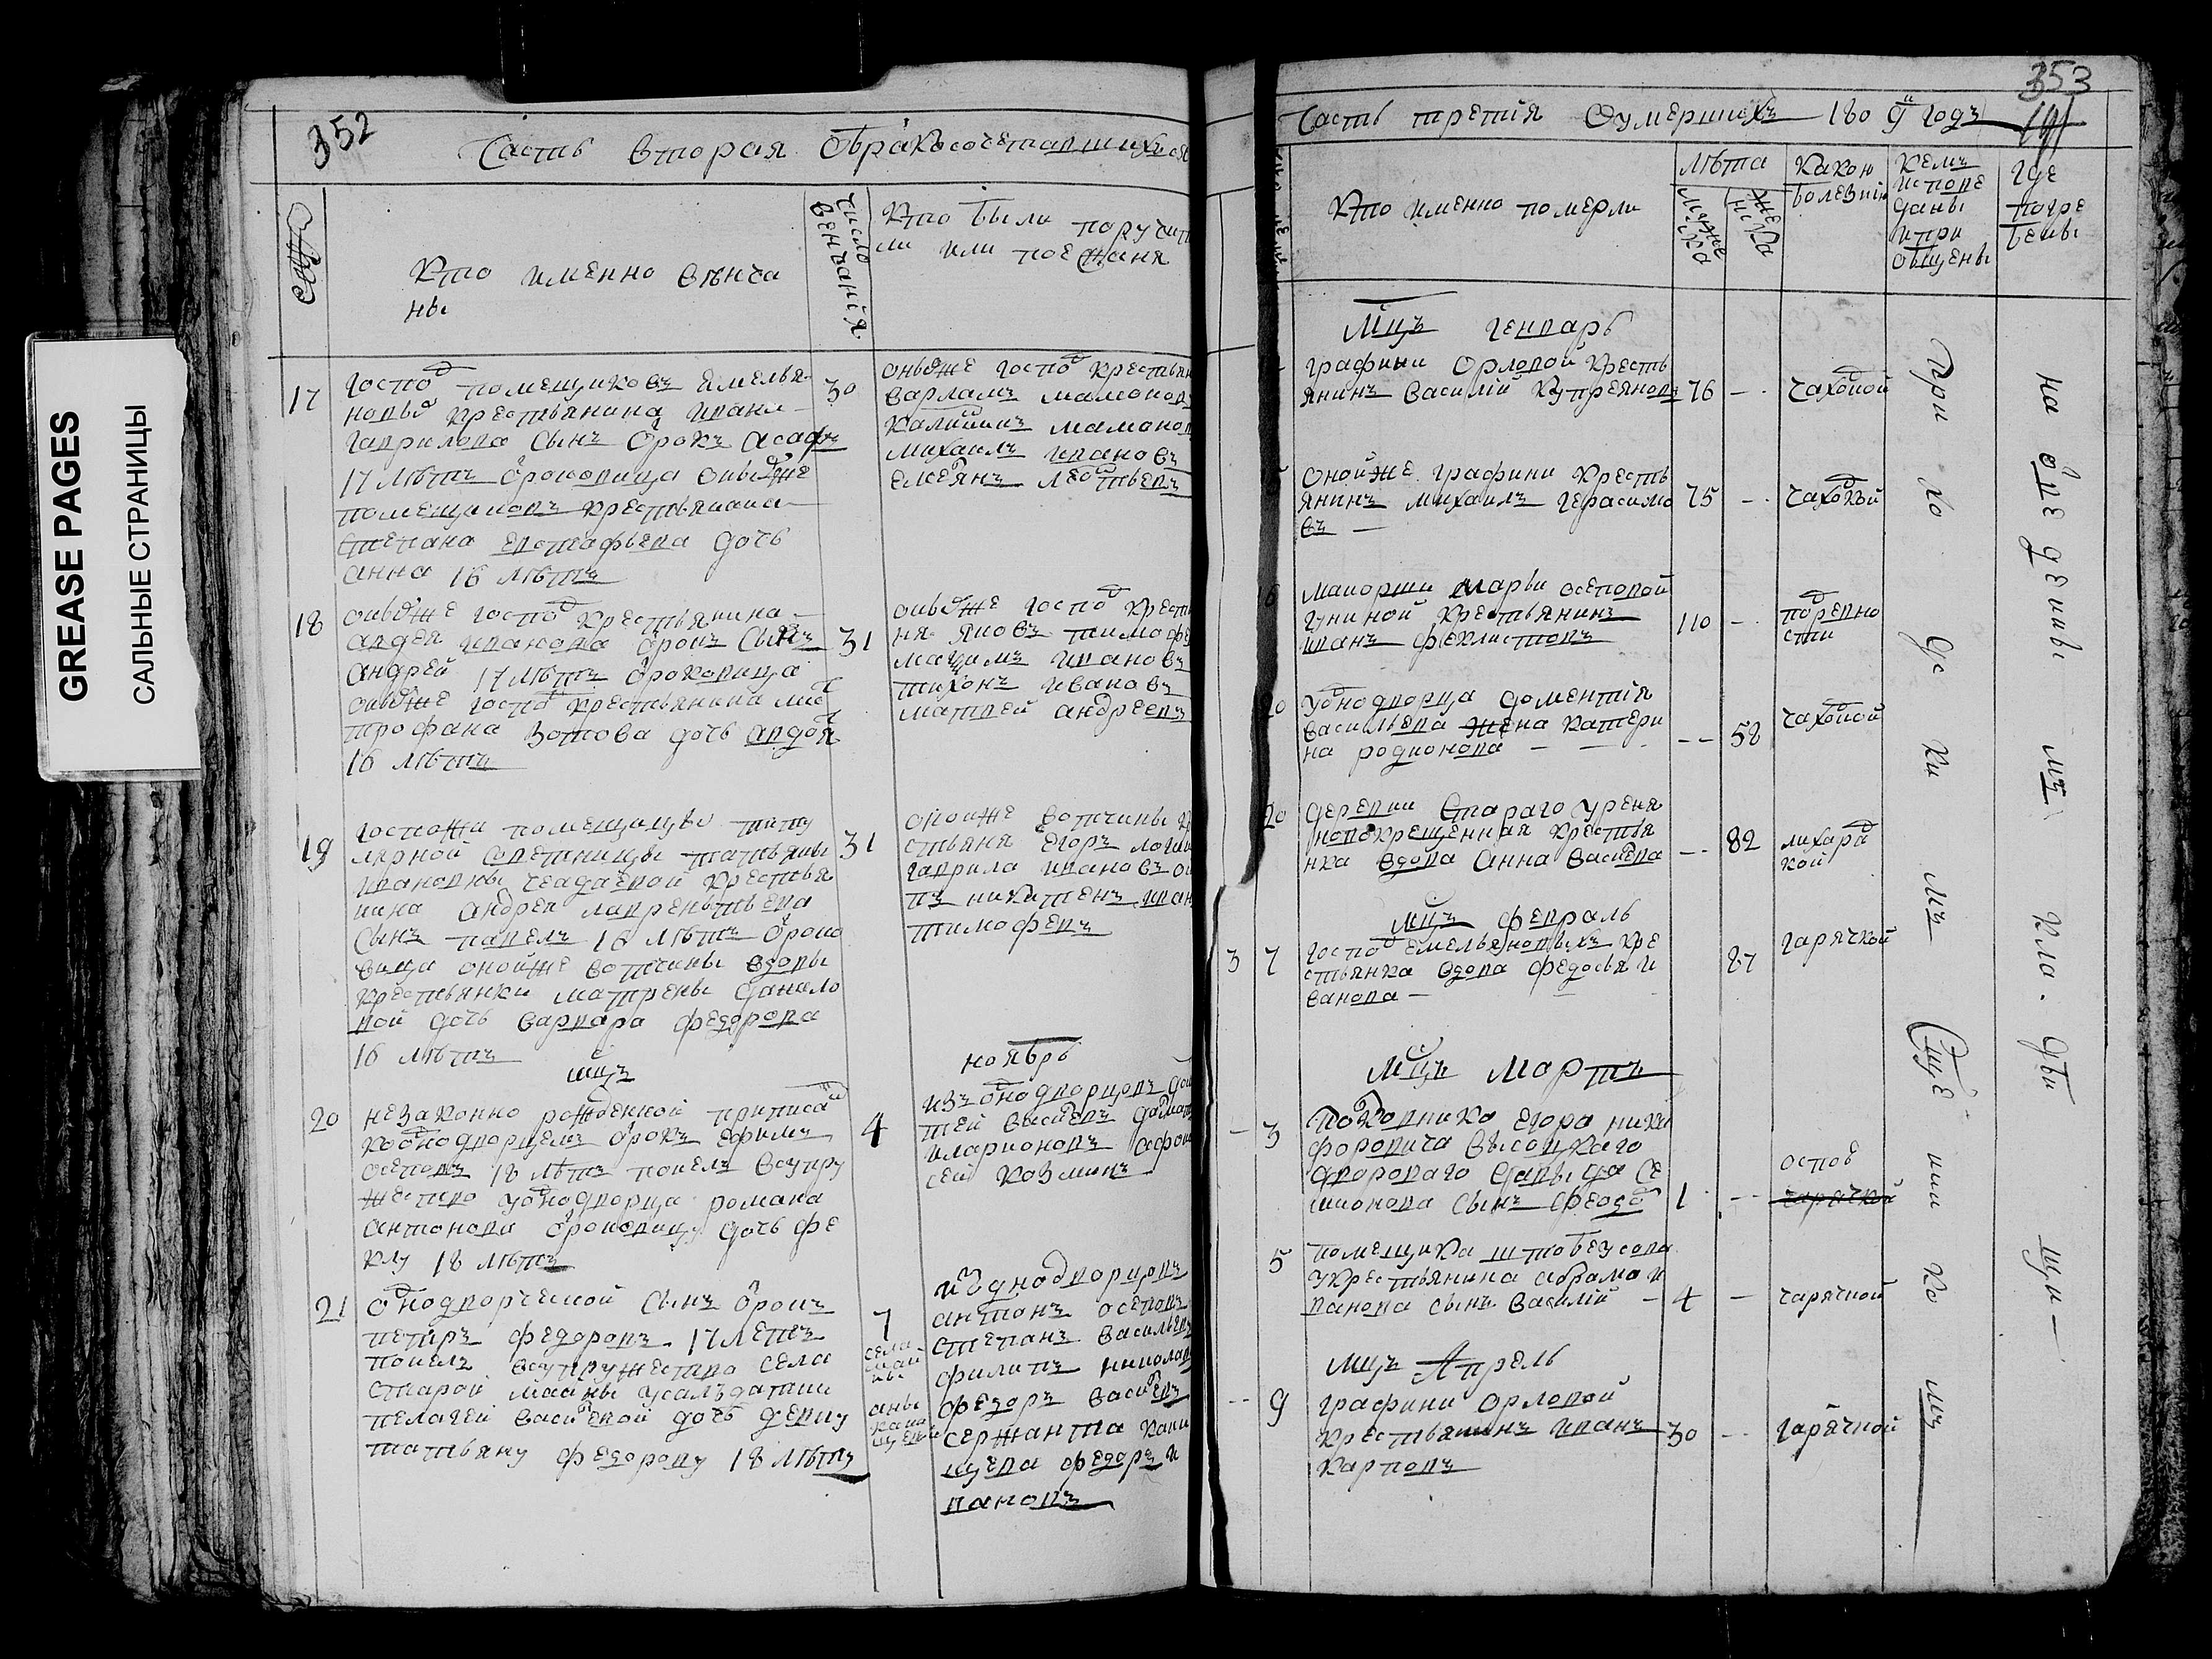 GREASE PAGES
САЛЬНЫЕ СТРАНИЦЫ
352
Часть вторая Обракосочетавшихся
Кто именно венча
ны
число венчанїя
Кто были поручит
ли или поезжаня
17
господ помещиковъ Емелья
новыхъ крестьянина ивана
гаврилова сынъ отрокъ асафъ
17 летъ отроковица оныхже
помещиковъ крестьянина
степана евстафьева дочь
анна 16 летъ
30
оныхже господ крестьян
варламъ мамоновъ
михаилъ ивановъ
18
оныхже господ крестьянина
авдея иванова отрокъ сынъ
андрей 17 летъ отроковица
оныхже господ крестьянина мит
трофана Зотова дочь авдотя
16 летъ
31
оныхже господ кресть
ня яковъ тимофе
максимъ ивановъ
тихонъ ивановъ
матвей андреевъ
19
госпожи помещицы титу
лярной советницы татьяны
ивановны чеадаевой крестья
нина андрея лаврентьева
сынъ павелъ 16 летъ отроко
вица оной же вотчины вдовы
крестьянки матрены данило
вой дочь варвара федорова
16 летъ
31
оной же вотчины кр
стьяня Егоръ логин
гаврила ивановъ
тимофевъ
мцъ ноябрь
20
незаконно рожденной приписан
кооднодворцемъ отрокъ ефимъ
осеповъ 18 летъ поелъ всупру
жество уоднодворца романа
антонова отроковицу дочь фе
клу 18 летъ
4
изъ однодворцовъ
тей василевъ
иларионовъ афона
сей козминъ
21
однодворческой сынъ отрокъ
петръ федоровъ 17 летъ
поелъ всупружество села
старой маины усалъдатки
пелагеи василевой дочь девку
татьяну федорову 18 летъ
7
изъ однодворцовъ
антонъ осеповъ
степанъ васильевъ
филипъ николаев
федоръ василевъ
сержанта каки
щева федоръ и
вановъ
353
191
Часть третїя Оумершихъ 1809 годъ
Кто именно померли
лета
мужеска
женска
какою
болезнїю
кемъ
испове
даны
и при
общены
где
погре
бены
Мцъ генварь
графини Орловой кресть
янинъ василїй купреяновъ
76
чахоткой
оной же графини кресть
янинъ михаилъ герасимо
въ
75
чахоткой
6
маиорши марьи осеповой
гуниной крестьянинъ
иванъ феклистовъ
110
тодревно
сти
20
уоднодворца дометїя
васильева жена катери
на родионова
58
чахоткой
20
деревни Стараго уреня
новокрещенная крестья
нка вдова анна василева
82
лихарад
кой
мцъ февраль
3
7
господ емельяновыхъ кре
стьянка вдова федосья и
ванова
87
гарячкой
Мцъ мартъ
3
полковника егора ники
форовича высоцкаго
двороваго давыда се
мионова сынъ феодот
1
оспое
гарячкой
5
помещика штовеусова
укрестьянина абрама и
ванова сынъ василїй
4
гарячкой
мцъ Апрель
9
графини орловой
крестьянинъ иванъ
карповъ
30
гарячкой